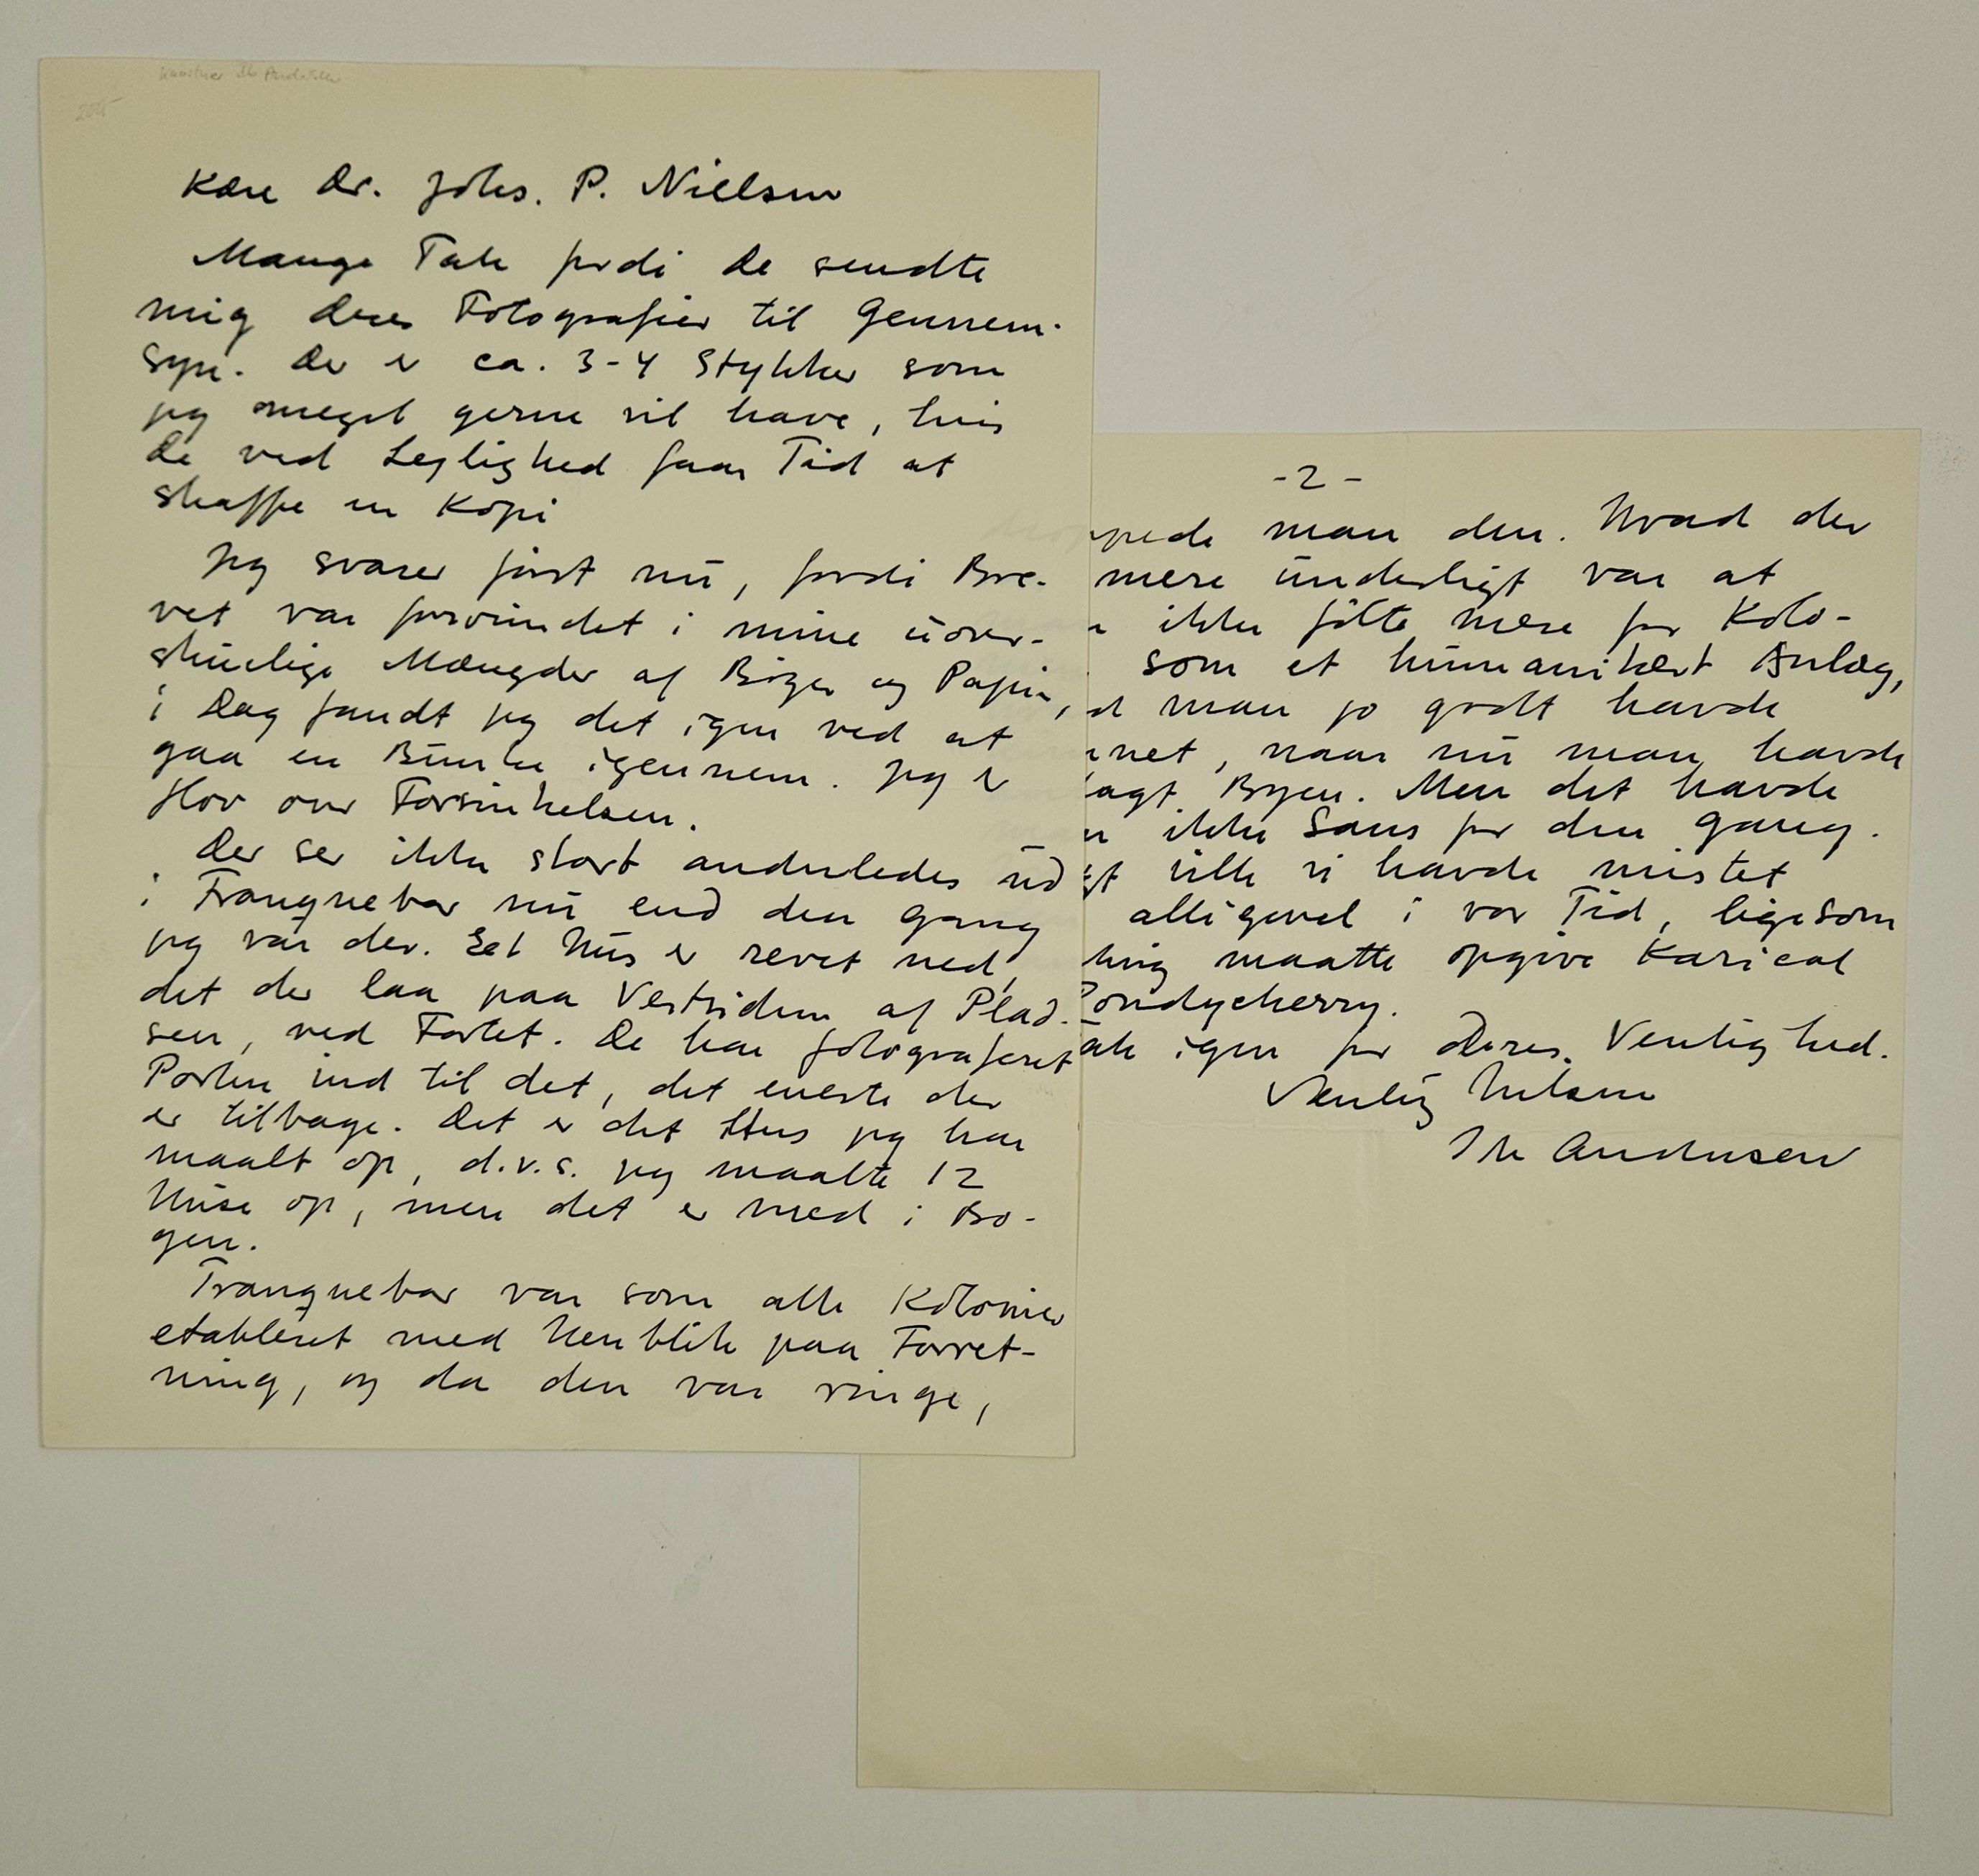 Kære Dr. Johs. P. Nielsen
Mange Tak fordi De sendte
mig Deres Fotografier til Gennem-
syn. Der er ca. 3-4 Stykker som
jeg meget gerne vil have, hvis
De ved Lejlighed faar Tid at
skaffe en Kopi
Jeg svarer først nu, fordi Bre-
vet var forsvundet i mine uover-
skuelige Mængder af Bøger og Papir,
i Dag fandt jeg det igen ved at
gaa en Bunke igennem. Jeg er
flov over Forsinkelsen.
Der ser ikke stort anderledes ud
i Tranquebar nu end den Gang
jeg var der. Eet Hus er revet ned,
det der laa paa Vestsiden af Plad-
sen, ved Fortet. De har fotograferet
Porten ind til det, det eneste der
er tilbage. Det er det Hus jeg har
maalt op, d.v.s. jeg maalte 12
Huse op, men det er med i Bo-
gen.
Tranquebar var som alle Kolonier
etableret med Henblik paa Forret-
ning, og da den var ringe,
-2-
ppede man den. Hvad der
mere underligt var at
n ikke følte mere for Kolo-
som et humanitært Anlæg,
d man jo godt havde
net, naar nu man havde
lagt Byen. Men det havde
n ikke Sans for den Gang.
gt ville vi havde mistet
alligevel i vor Tid, ligesom
maatte opgive Karical
Pondycherry.
Tak igen for Deres Venlighed.
Venlig Hilsen
Ib Andersen